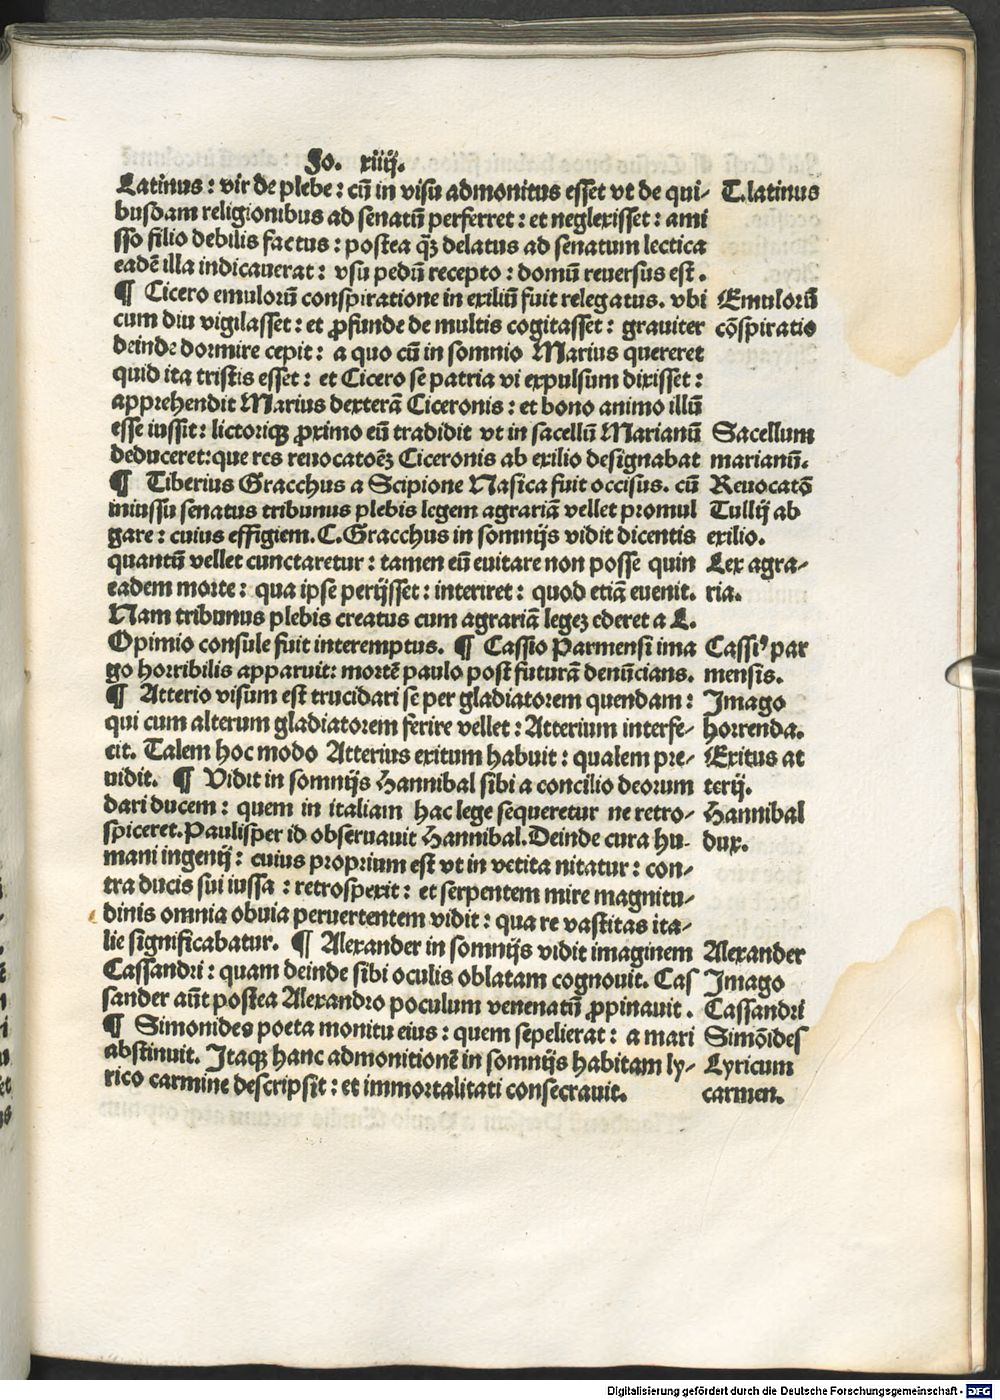 Fo. xiiij.
Latinus : vir de plebe : cū in visu admonitus esset vt de qui- T.latinus
busdam religionibus ad senatū perferret : et neglexisset : ami
sso filio debilis factus : postea qȝ delatus ad senatum lectica
eadē illa indicauerat : vsu pedū recepto : domū reuersus est .
¶ Cicero emulorū conspiratione in exiliū fuit relegatus. vbi Emulorū
cum diu vigilasset : et ꝓfunde de multis cogitasset : grauiter cōspiratio
deinde dormire cepit : a quo cū in somnio Marius quereret
quid ita tristis esset : et Cicero se patria vi expulsum dixisset :
apprehendit Marius dexterā Ciceronis : et bono animo illū
esse iussit : lictoriqȝ ꝓximo eū tradidit vt in sacellū Marianū Sacellum
deduceret:que res reuocatōeȝ Ciceronis ab exilio designabat marianū.
¶ Tiberius Gracchus a Scipione Nasica fuit occisus. cū Reuocatō
iniussu senatus tribunus plebis legem agrariā vellet promul Tullij ab
gare : cuius effigiem. C. Gracchus in somnijs vidit dicentis exilio.
quantū vellet cunctaretur : tamen eū euitare non posse quin Lex agra-
eadem morte : qua ipse perijsset : interiret : quod etiā euenit. ria.
Nam tribunus plebis creatus cum agrariā legeȝ ederet a L.
Opimio consule fuit interemptus. ¶ Cassio Parmensi ima Cassiꝰ par
go horribilis apparuit: mortē paulo post futurā denūcians. mensis.
¶ Atterio visum est trucidari se per gladiatorem quendam : Imago
qui cum alterum gladiatorem ferire vellet : Atterium interfe- horrenda.
cit. Talem hoc modo Atterius exitum habuit : qualem pre- Exitus at
uidit. ¶ Vidit in somnijs Hannibal sibi a concilio deorum terij.
dari ducem : quem in italiam hac lege sequeretur ne retro- Hannibal
spiceret. Paulisper id obseruauit Hannibal. Deinde cura hu- dux.
mani ingenij : cuius proprium est vt in vetita nitatur : con-
tra ducis sui iussa : retrospexit : et serpentem mire magnitu-
dinis omnia obuia peruertentem vidit : qua re vastitas ita-
lie significabatur. ¶ Alexander in somnijs vidit imaginem Alexander
Cassandri : quam deinde sibi oculis oblatam cognouit. Cas Imago
sander aūt postea Alexandro poculum venenatū ꝓpinauit . Cassandri
¶ Simonides poeta monitu eius : quem sepelierat : a mari Simōides
abstinuit. Itaqȝ hanc admonitionē in somnijs habitam ly- Lyricum
rico carmine descripsit : et immortalitati consecrauit. carmen.
Digitalisierung gefördert durch die Deutsche Forschungsgemeinschaft - DFG